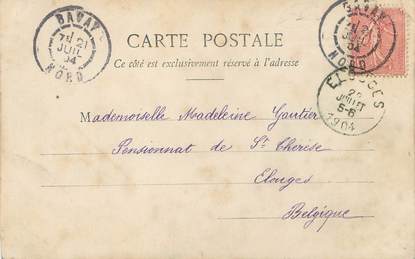 BAVAY
7 21
JUIL
04
NORD
CARTE POSTALE
Ce côté est exclusivement réservé à l'adresse
BAVAY
21
04
NORD
ELOUGES
22
JUILLET
5-6
1904
Mademoiselle Madeleine Gautier
Pensionnat de St Thérèse
Elouges
Belgique